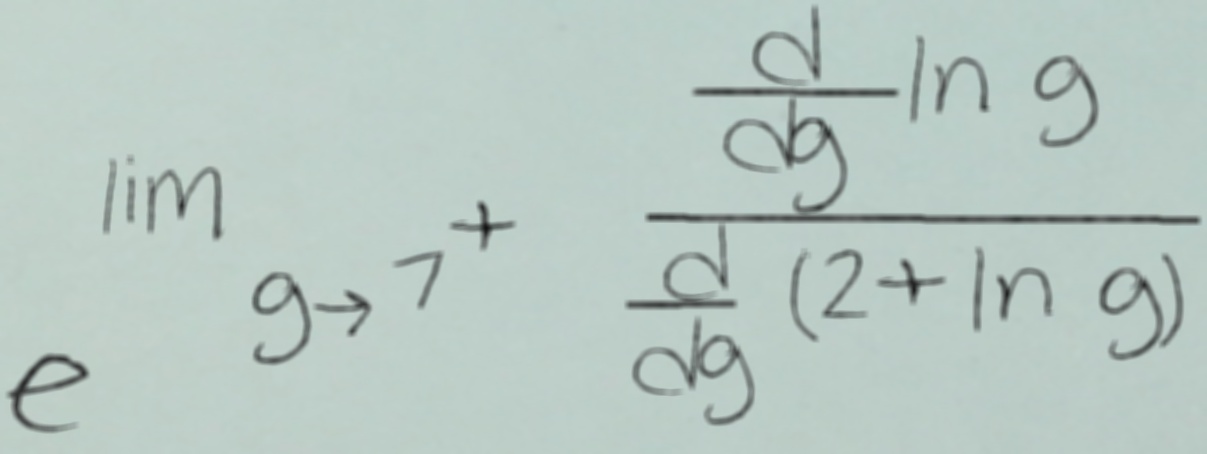 e^{\lim_{g \to 7^+} \frac{\frac{d}{dg} \ln g}{\frac{d}{dg} (2 + \ln g)}}